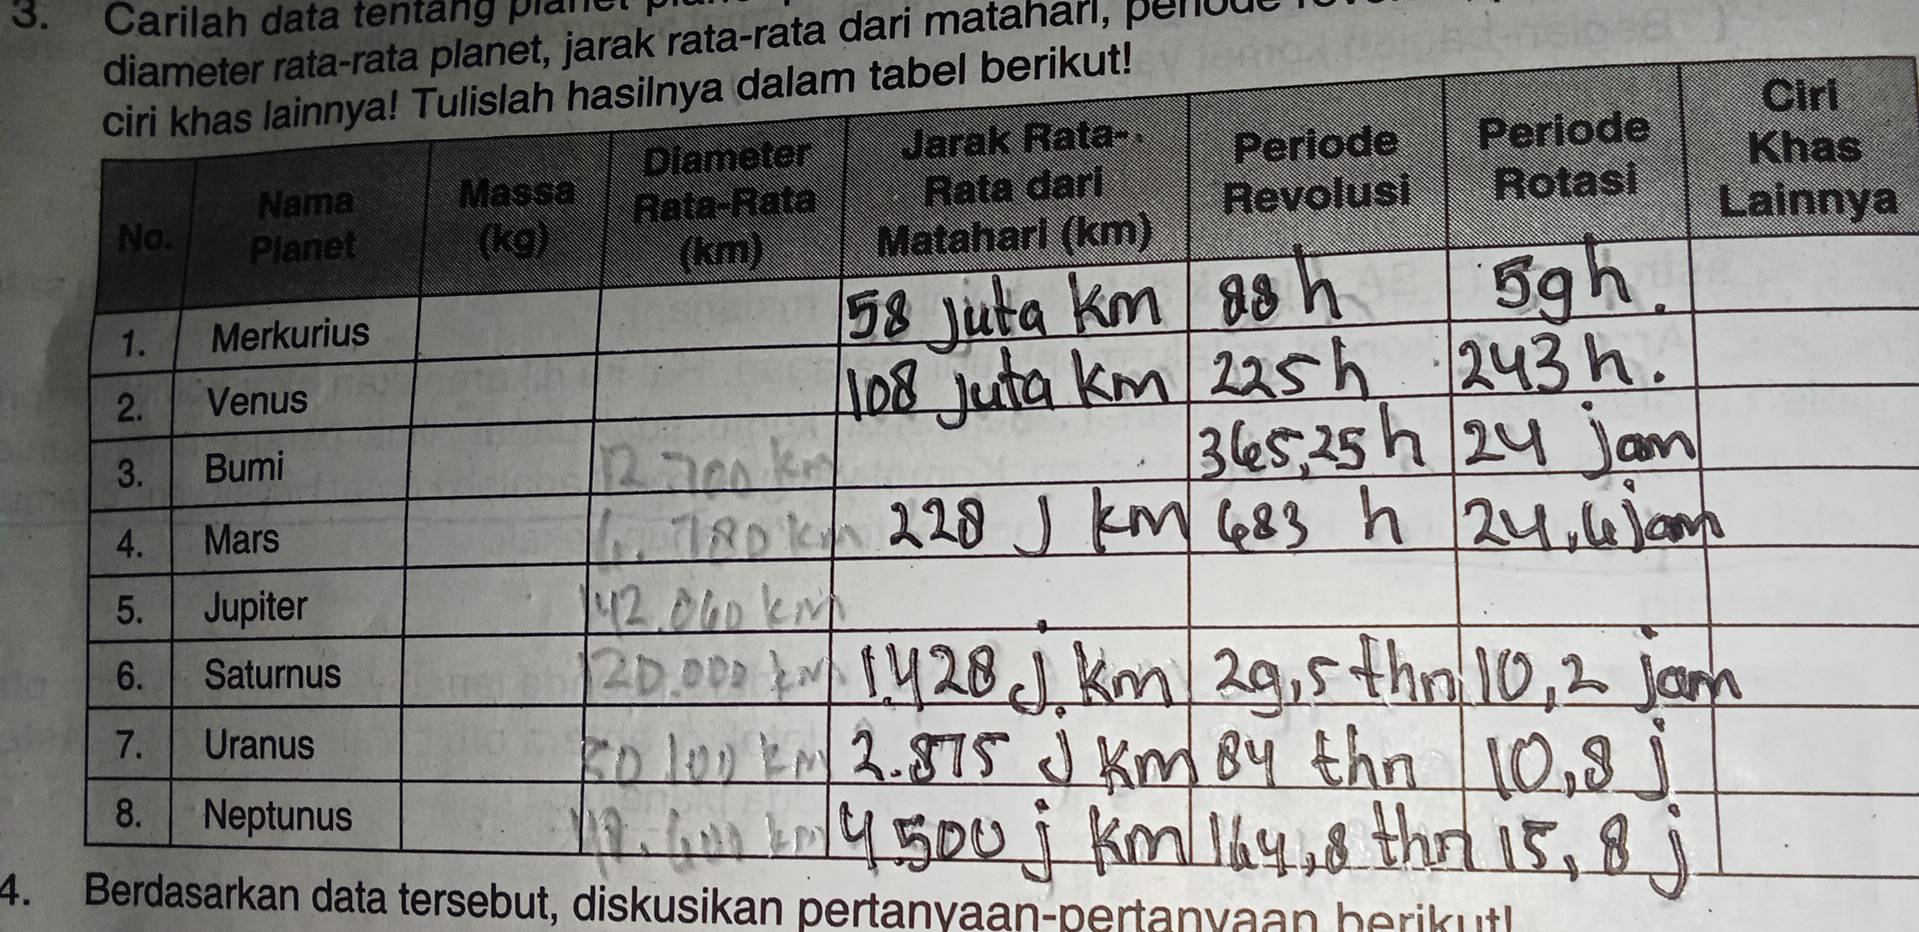 3. Carilah data tentang
diameter rata-rata planet, jarak rata-rata dari matahari, periode
ciri khas lainnya! Tulislah hasilnya dalam tabel berikut!
No. Nama Planet Massa (kg) Diameter Rata-Rata (km) Jarak Rata-Rata dari Matahari (km) Periode Revolusi Periode Rotasi Ciri Khas Lainnya
1. Merkurius 58 juta km 88 h 59 h.
2. Venus 108 juta km 225 h 243 h.
3. Bumi 12.700 km 365,25 h 24 jam
4. Mars 6.780 km 228 J km 683 h 24,6 jam
5. Jupiter 142.060 km
6. Saturnus 120.000 km 1.428 J. km 29,5 thn 10,2 jam
7. Uranus 50 100 km 2.875 J km 84 thn 10,8 j
8. Neptunus km 4.500 j km 164,8 thn 15,8 j
4. Berdasarkan data tersebut, diskusikan pertanyaan-pertanyaan berikut!